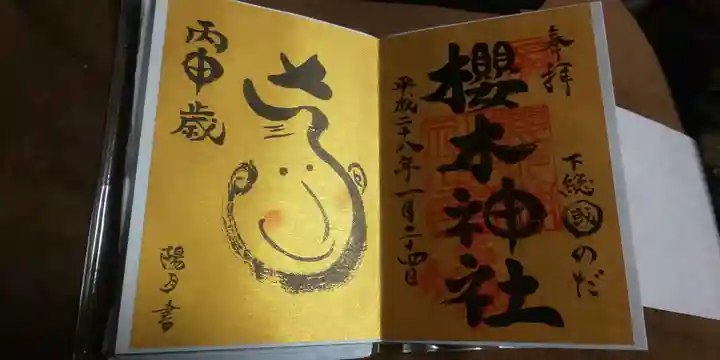 奉拝
下総国のだ
櫻木神社
平成二十八年一月二十四日
丙申歳
陽夕書